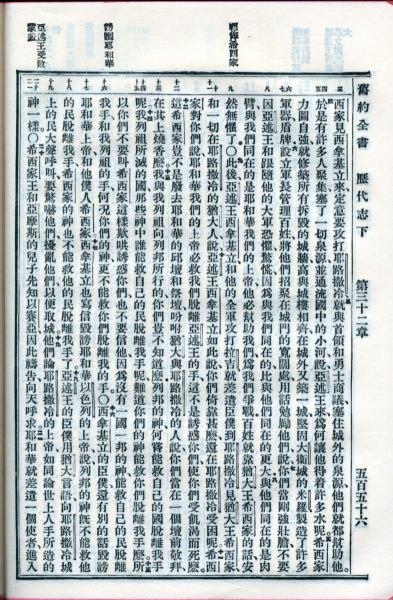 舊約全書 歷代志下 第三十二章 五百五十六
西家見西拿基立來定意要攻打耶路撒冷就與首領和勇士商議塞住城外的泉源他們就都幫助他
於是有許多人聚集塞了一切泉源並通流國中的小河說亞述王來爲何讓他得着許多水呢希西家
力圖自強就修築所有拆毀的城牆高與城樓相齊在城外又築一城堅固大衛城的米羅製造了許多
軍器盾牌設立軍長管理百姓將他們招聚在城門的寬闊處用話勉勵他們說你們當剛強壯膽不要
因亞述王和跟隨他的大軍恐懼驚慌因爲與我們同在的比與他們同在的更大與他們同在的是肉
臂與我們同在的是耶和華我們的上帝他必幫助我們爲我們爭戰百姓就靠猶大王希西家的話安
然無懼了〇此後亞述王西拿基立和他的全軍攻打拉吉就差遣臣僕到耶路撒冷見猶大王希西家
和一切在耶路撒冷的猶大人說亞述王西拿基立如此說你們倚靠甚麼還在耶路撒冷受困呢希西
家對你們說耶和華我們的上帝必救我們脫離亞述王的手這不是誘惑你們使你們受飢渴而死麼
這希西家豈不是廢去耶和華的邱壇和祭壇吩咐猶大與耶路撒冷的人說你們當在一個壇前敬拜
在其上燒香麼我與我列祖向列邦所行的你們豈不知道麼列邦的神何嘗能救自己的國脫離我手
呢我列祖所滅的國那些神中誰能救自己的民脫離我手呢難道你們的神能救你們脫離我手麼所
以你們不要叫希西家這樣欺哄誘惑你們也不要信他因爲沒有一國一邦的神能救自己的民脫離
我手和我列祖的手何況你們的神更不能救你們脫離我的手〇西拿基立的臣僕還有別的話毀謗
耶和華上帝和他僕人希西家西拿基立也寫信毀謗耶和華以色列的上帝說列邦的神既不能救他
的民脫離我手希西家的神也不能救他的民脫離我手了亞述王的臣僕用猶大言語向耶路撒冷城
上的民大聲呼叫要驚嚇他們擾亂他們以便取城他們論耶路撒冷的上帝如同論世上人手所造的
神一樣〇希西家王和亞摩斯的兒子先知以賽亞因此禱告向天呼求耶和華就差遣一個使者進入